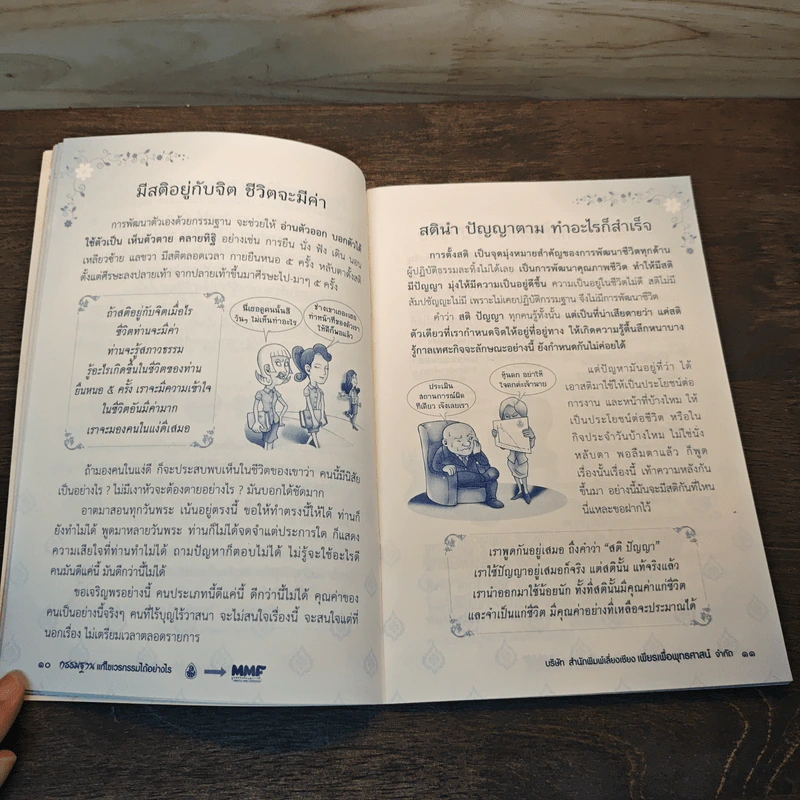 มีสติอยู่กับจิต ชีวิตจะมีค่า
การพัฒนาตัวเองด้วยกรรมฐาน จะช่วยให้ อ่านตัวออก บอกตัวได้
ใช้ตัวเป็น เห็นตัวตาย คลายทิฐิ อย่างเช่น การยืน นั่ง ฟัง เดิน นอน
เหลียวซ้าย แลขวา มีสติตลอดเวลา กายยืนหนอ ๕ ครั้ง หลับตาตั้งสติ
ตั้งแต่ศีรษะลงปลายเท้า จากปลายเท้าขึ้นมาศีรษะไป-มาๆ ๕ ครั้ง
ถ้าสติอยู่กับจิตเมื่อไร
ชีวิตท่านจะมีค่า
ท่านจะรู้สภาวธรรม
รู้อะไรเกิดขึ้นในชีวิตของท่าน
ยืนหนอ ๕ ครั้ง เราจะมีความเข้าใจ
ในชีวิตอันมีค่ามาก
เราจะมองคนในแง่ดีเสมอ
นี่เธอดูคนนั้นสิ
วันๆ ไม่เห็นทำอะไร
ช่างเขาเถอะเธอ
ทำหน้าที่ของตัวเรา
ให้ดีก็พอแล้ว
ถ้ามองคนในแง่ดี ก็จะประสบพบเห็นในชีวิตของเขาว่า คนนี้มีนิสัย
เป็นอย่างไร ? ไม่มีเงาหัวจะต้องตายอย่างไร ? มันบอกได้ชัดมาก
อาตมาสอนทุกวันพระ เน้นอยู่ตรงนี้ ขอให้ทำตรงนี้ให้ได้ ท่านก็
ยังทำไม่ได้ พูดมาหลายวันพระ ท่านก็ไม่ได้จดจำแต่ประการใด ก็แสดง
ความเสียใจที่ท่านทำไม่ได้ ถามปัญหาก็ตอบไม่ได้ ไม่รู้จะใช้อะไรดี
คนมันดีแค่นี้ มันดีกว่านี้ไม่ได้
ขอเจริญพรอย่างนี้ คนประเภทนี้ดีแค่นี้ ดีกว่านี้ไม่ได้ คุณค่าของ
คนเป็นอย่างนี้จริงๆ คนที่ไร้บุญไร้วาสนา จะไม่สนใจเรื่องนี้ จะสนใจแต่ที่
นอกเรื่อง ไม่เตรียมเวลาตลอดรายการ
๑๐ กรรมฐาน แก้ไขเวรกรรมได้อย่างไร MMF
สตินำ ปัญญาตาม ทำอะไรก็สำเร็จ
การตั้งสติ เป็นจุดมุ่งหมายสำคัญของการพัฒนาชีวิตทุกด้าน
ผู้ปฏิบัติธรรมละทิ้งไม่ได้เลย เป็นการพัฒนาคุณภาพชีวิต ทำให้มีสติ
มีปัญญา มุ่งให้มีความเป็นอยู่ดีขึ้น ความเป็นอยู่ในชีวิตไม่ดี สติไม่มี
สัมปชัญญะไม่มี เพราะไม่เคยปฏิบัติกรรมฐาน จึงไม่มีการพัฒนาชีวิต
คำว่า สติ ปัญญา ทุกคนรู้ทั้งนั้น แต่เป็นที่น่าเสียดายว่า แค่สติ
ตัวเดียวที่เรากำหนดจิตให้อยู่ที่อยู่ทาง ให้เกิดความรู้ตื้นลึกหนาบาง
รู้กาลเทศะกิจจะลักษณะอย่างนี้ ยังกำหนดกันไม่ค่อยได้
ประเมิน
สถานการณ์ผิด
ทีเดียว เจ๊งเลยเรา
หุ้นตก อย่าให้
ใจตกค่ะเจ้านาย
แต่ปัญหามันอยู่ที่ว่า ได้
เอาสติมาใช้ให้เป็นประโยชน์ต่อ
การงาน และหน้าที่บ้างไหม ให้
เป็นประโยชน์ต่อชีวิต หรือใน
กิจประจำวันบ้างไหม ไม่ใช่นั่ง
หลับตา พอลืมตาแล้ว ก็พูด
เรื่องนั้นเรื่องนี้ เท้าความหลังกัน
ขึ้นมา อย่างนี้มันจะมีสติกันที่ไหน
นี่แหละขอฝากไว้
เราพูดกันอยู่เสมอ ถึงคำว่า “สติ ปัญญา”
เราใช้ปัญญาอยู่เสมอก็จริง แต่สตินั้น แท้จริงแล้ว
เรานำออกมาใช้น้อยนัก ทั้งที่สตินั้นมีคุณค่าแก่ชีวิต
และจำเป็นแก่ชีวิต มีคุณค่าอย่างที่เหลือจะประมาณได้
บริษัท สำนักพิมพ์เลี่ยงเชียง เพียรเพื่อพุทธศาสน์ จำกัด ๑๑